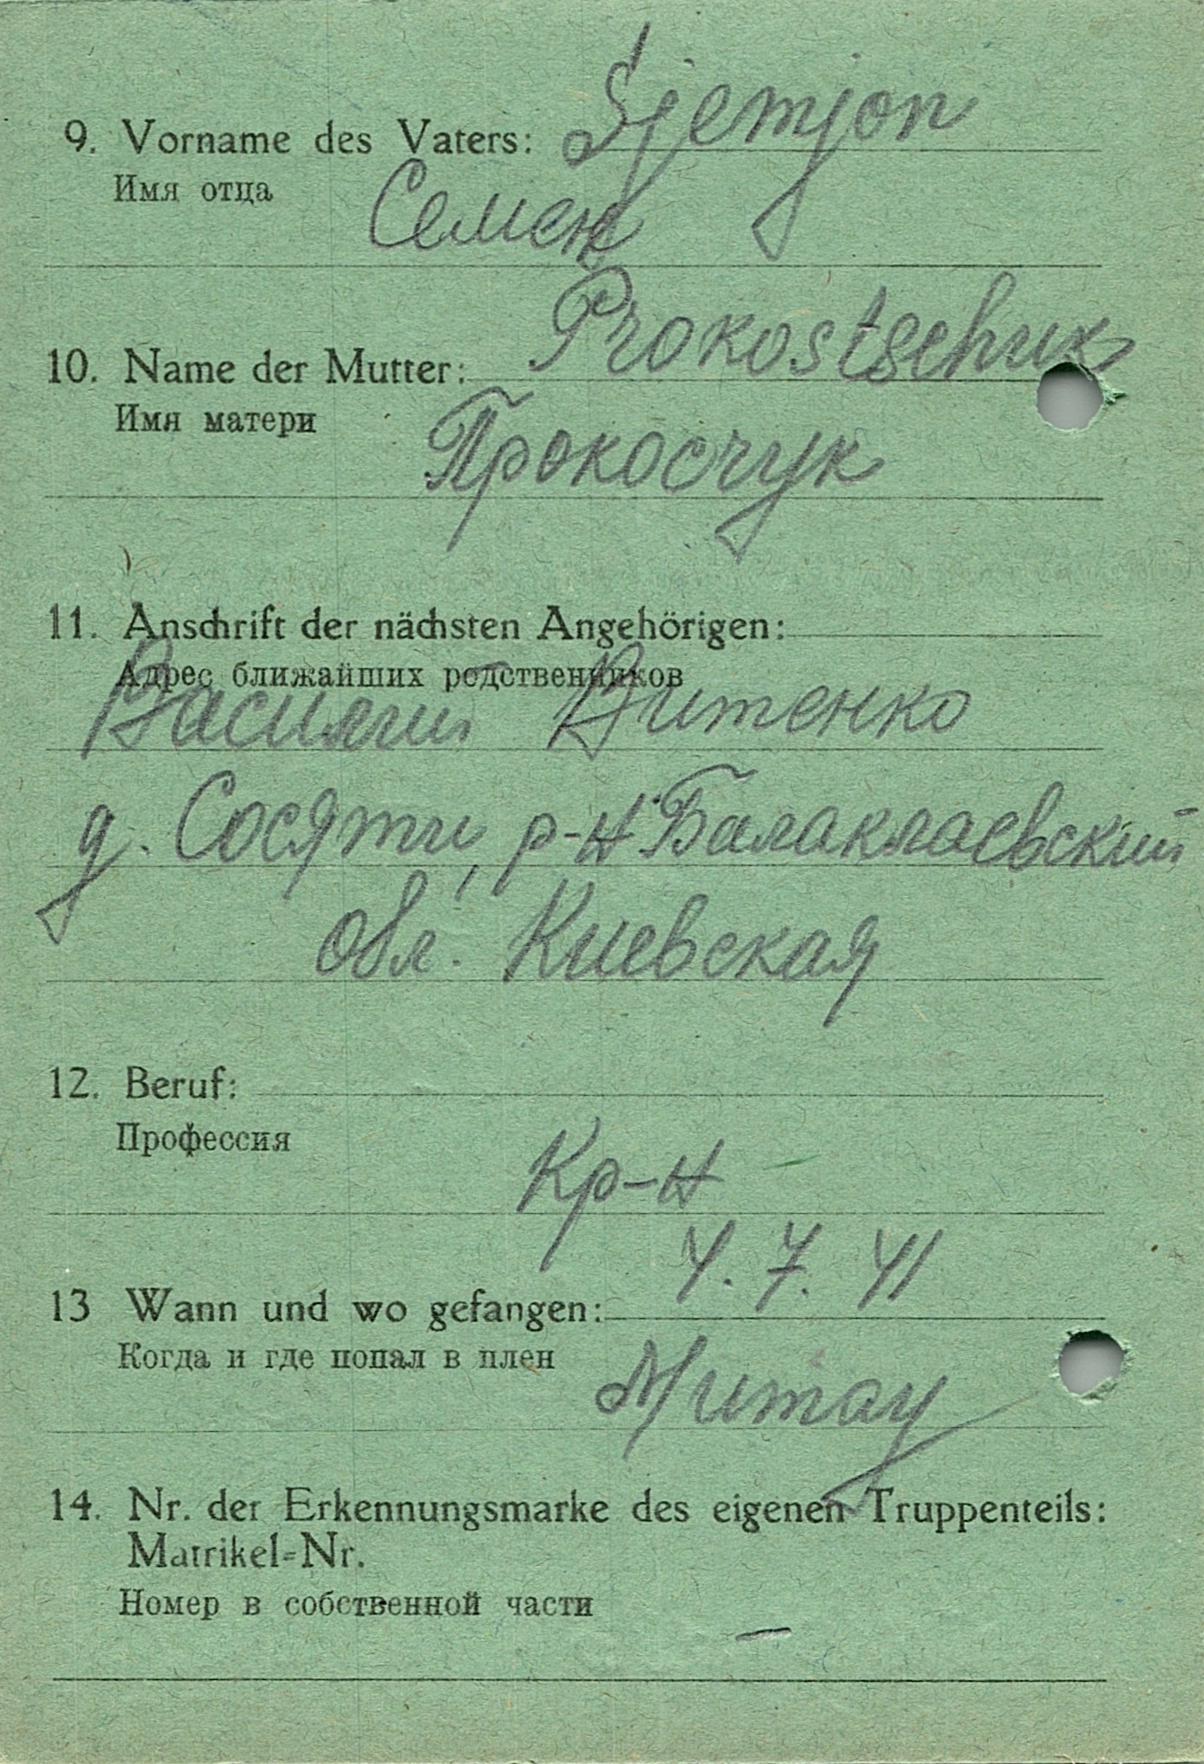 9. Vorname des Vaters: Sjemjon
Имя отца
Семен
10. Name der Mutter: Prokostschuk
Имя матери
Прокосчук
11. Anschrift der nächsten Angehörigen:
Адрес ближайших родственников
Василий Витенко
д. Сосяти, р-н Балаклаевский
обл. Киевская
12. Beruf:
Профессия
Кр-н
4. 7. 41
13 Wann und wo gefangen:
Когда и где попал в плен
Митау
14. Nr. der Erkennungsmarke des eigenen Truppenteils:
Matrikel=Nr.
Номер в собственной части
—